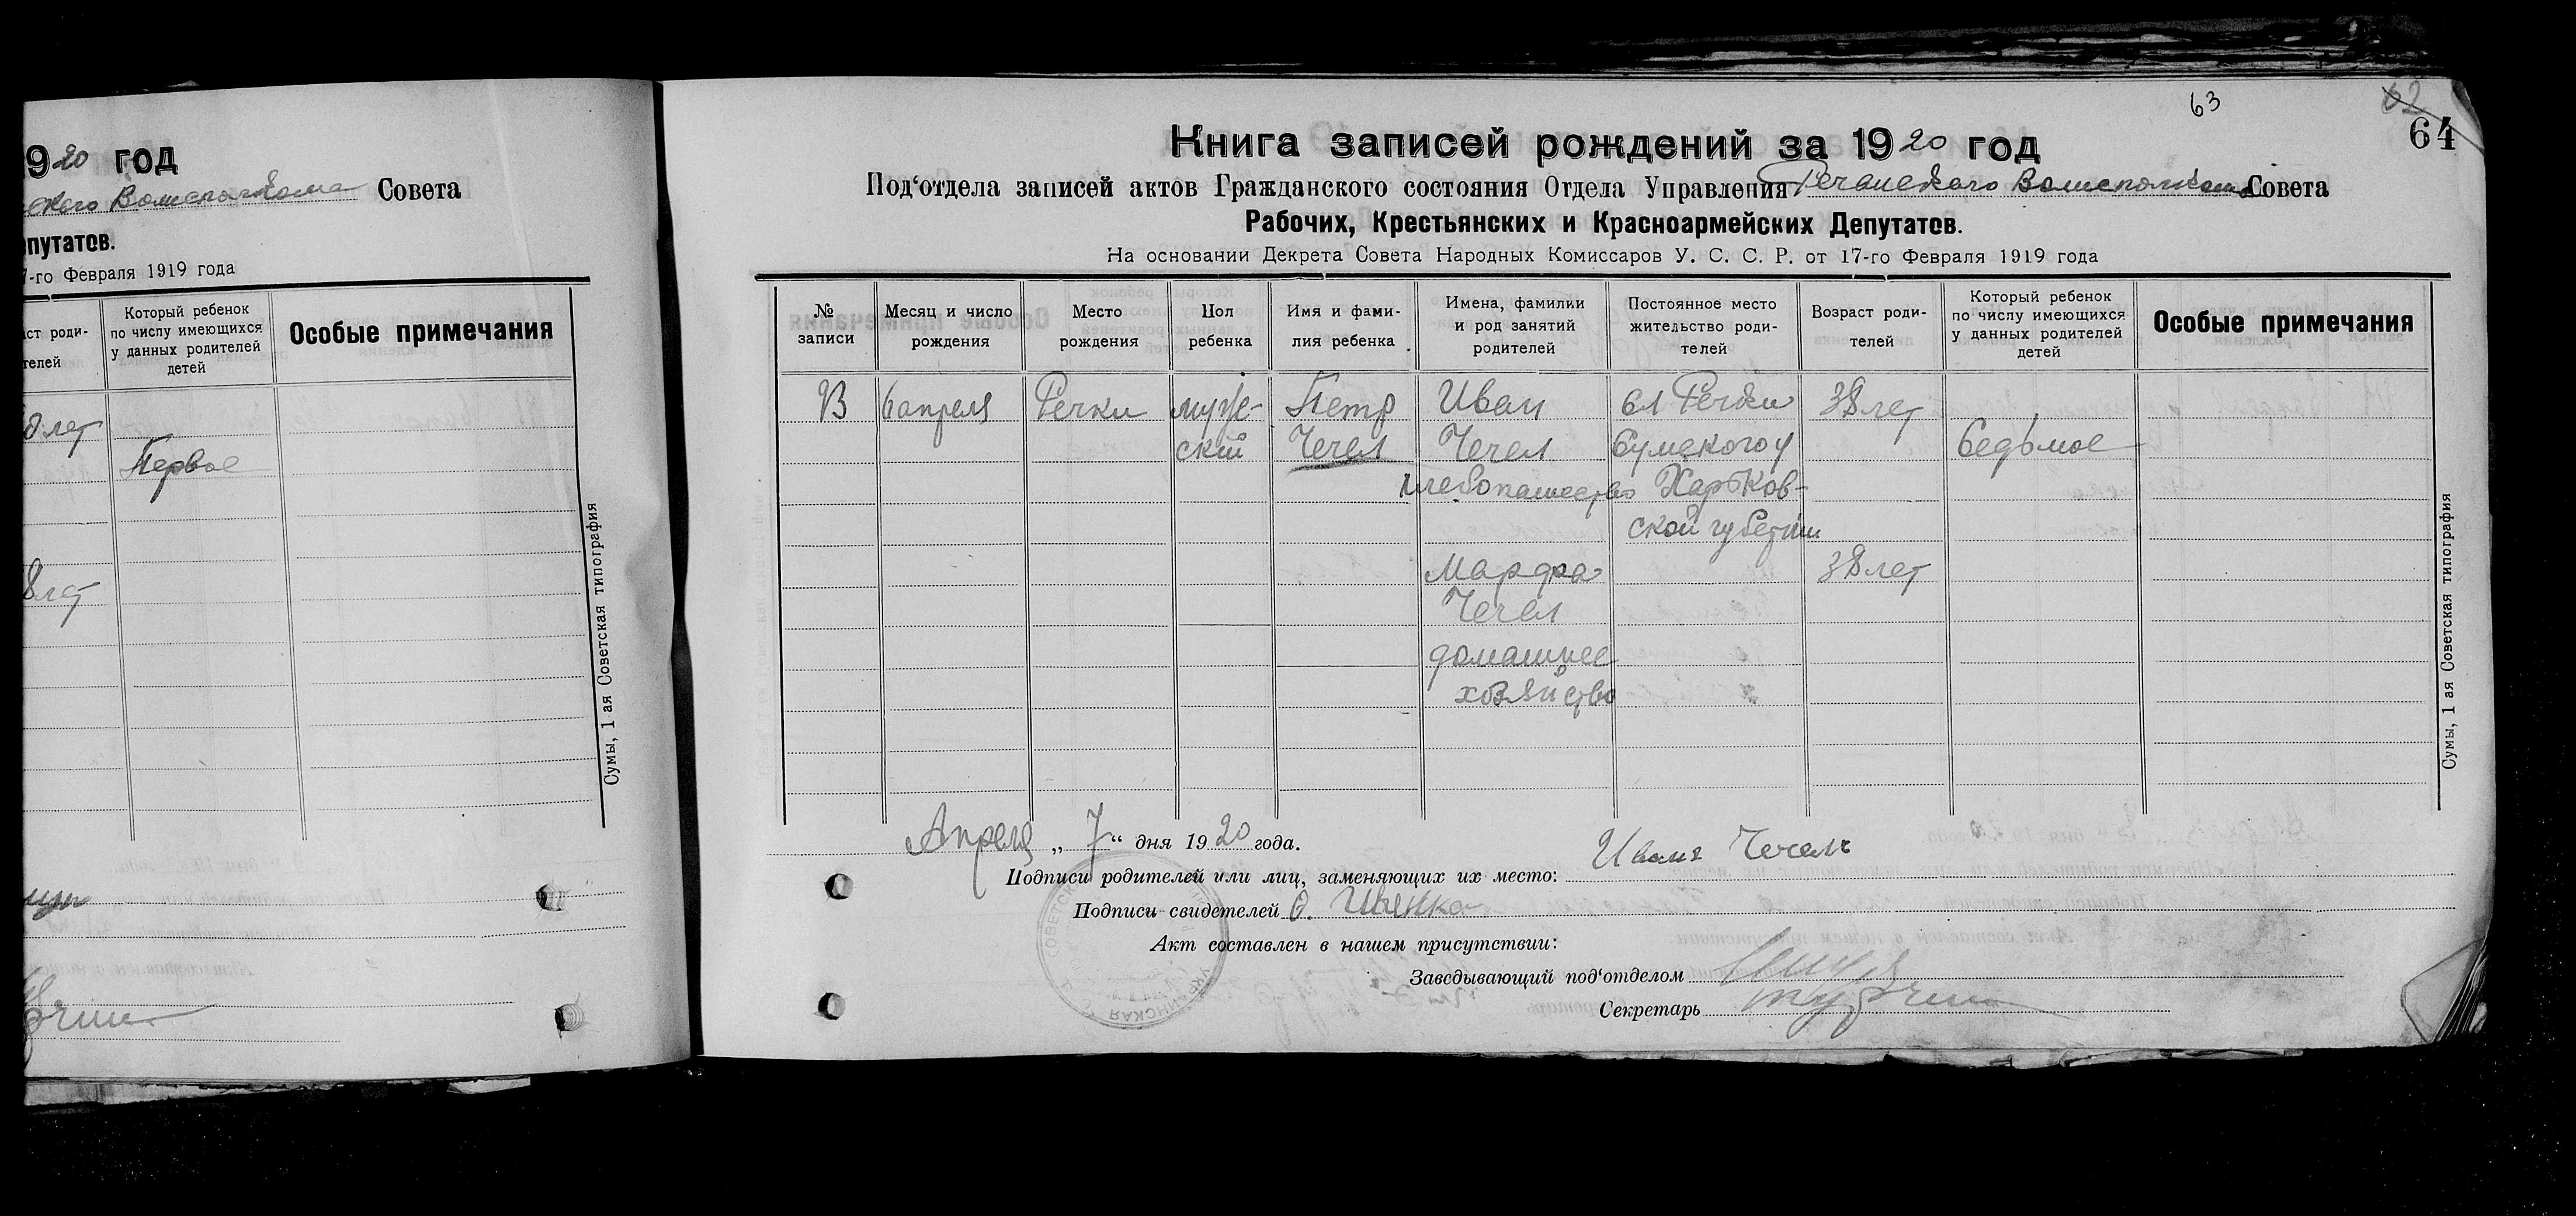 920 год
ского Волисполкома Совета
епутатов.
7-го Февраля 1919 года
ст роди-
телей
Который ребенок
по числу имеющихся
у данных родителей
детей
Особые примечания
8 лет
Первое
8 лет
Сумы, 1 ая Советская типография
63
62
64
Книга записей рождений за 1920 год
Под‘отдела записей актов Гражданского состояния Отдела Управления Речанского Волисполкома Совета
Рабочих, Крестьянских и Красноармейских Депутатов.
На основании Декрета Совета Народных Комиссаров У. С. С. Р. от 17-го Февраля 1919 года
№
записи
Месяц и число
рождения
Место
рождения
Пол
ребенка
Имя и фами-
лия ребенка
Имена, фамилии
и род занятий
родителей
Постоянное место
жительство роди-
телей
Возраст роди-
телей
Который ребенок
по числу имеющихся
у данных родителей
детей
Особые примечания
6 апреля Речки муже- Петр Иван сл Речки 38 лет
ский Чечел Чечел Сумского у Седьмое
хлебопашество Харьков-
ской губернии
Марфа 38 лет
Чечел
домашнее
хозяйство
Сумы, 1 ая Советская типография
Апреля „ 7 “ дня 1920 года.
Подписи родителей или лиц, заменяющих их место: Иванъ Чечелъ
Подписи свидетелей
Акт составлен в нашем присутствии:
Заведывающий под‘отделом
Секретарь